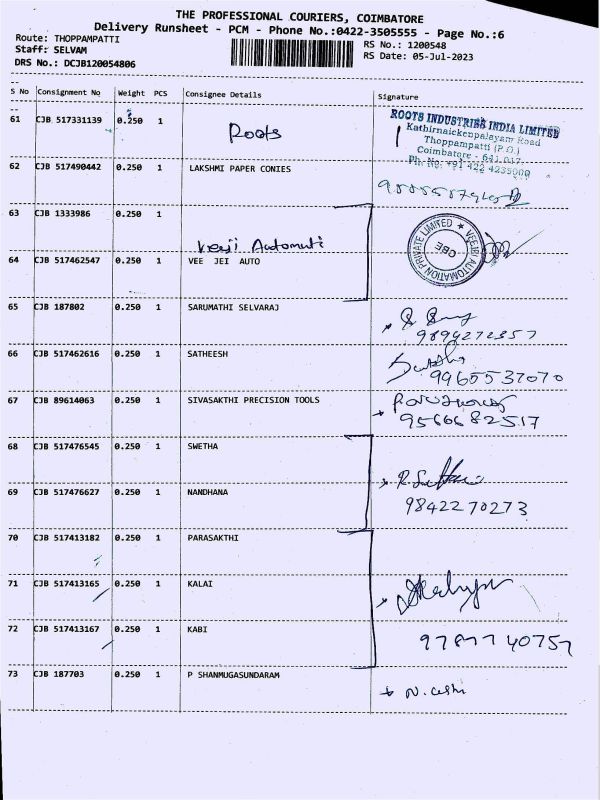 THE PROFESSIONAL COURIERS, COIMBATORE
Delivery Runsheet - PCM - Phone No.:0422-3505555 - Page No.:6
Route: THOPPAMPATTI
RS No.: 1200548
Staff: SELVAM
RS Date: 05-Jul-2023
DRS No.: DCJB120054806
S No Consignment No Weight PCS Consignee Details Signature
61 CJB 517331139 0.250 1 Roots
ROOTS INDUSTRIES INDIA LIMITED
Kathirnaickenpalayam Road
Thoppampatti (P.O.)
Coimbatore - 641 017.
Ph: No: +91 422 4235000
62 CJB 517490442 0.250 1 LAKSHMI PAPER CONIES
63 CJB 1333986 0.250 1
Veeji Automati
VEEJEI AUTOMATION PRIVATE LIMITED
CBE
64 CJB 517462547 0.250 1 VEE JEI AUTO
65 CJB 187802 0.250 1 SARUMATHI SELVARAJ
9894272357
66 CJB 517462616 0.250 1 SATHEESH
9965537070
67 CJB 89614063 0.250 1 SIVASAKTHI PRECISION TOOLS
9566682517
68 CJB 517476545 0.250 1 SWETHA
69 CJB 517476627 0.250 1 NANDHANA
9842270273
70 CJB 517413182 0.250 1 PARASAKTHI
71 CJB 517413165 0.250 1 KALAI
72 CJB 517413167 0.250 1 KABI
73 CJB 187703 0.250 1 P SHANMUGASUNDARAM